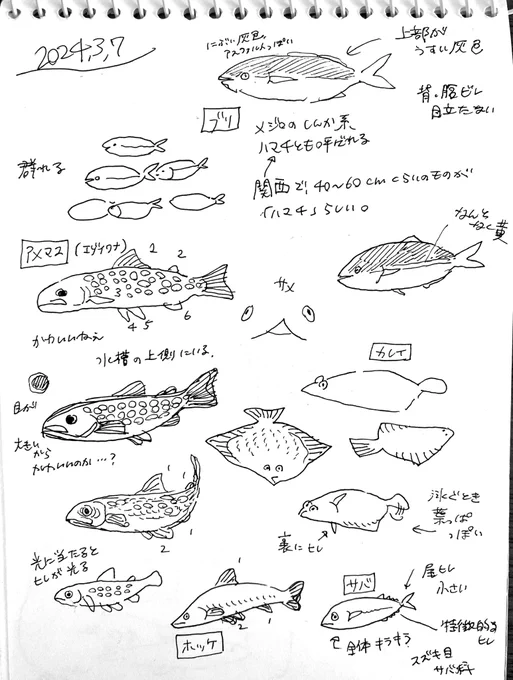 2024,3,7
にぶい灰色。
アスファルトっぽい
上部が
うすい灰色
背・腹ビレ
目立たない
ブリ
メジロのしんか系、
ハマチとも呼ばれる
関西で、40〜60cmくらいのものが
「ハマチ」らしい。
群れる
なんと
なく黄
アメマス
(エゾイワナ)
1
2
3
4
5
6
サメ
かわいいねぇ
水槽の上側にいる。
カレイ
目が
大きい
から
かわいいのか…?
1
1
2
1
泳ぐとき
葉っぱ
っぽい
裏にヒレ
光に当たると
ヒレが光る
1
2
1
ホッケ
サバ
尾ヒレ
小さい
特徴的な
ヒレ
全体キラキラ
スズキ目
サバ科